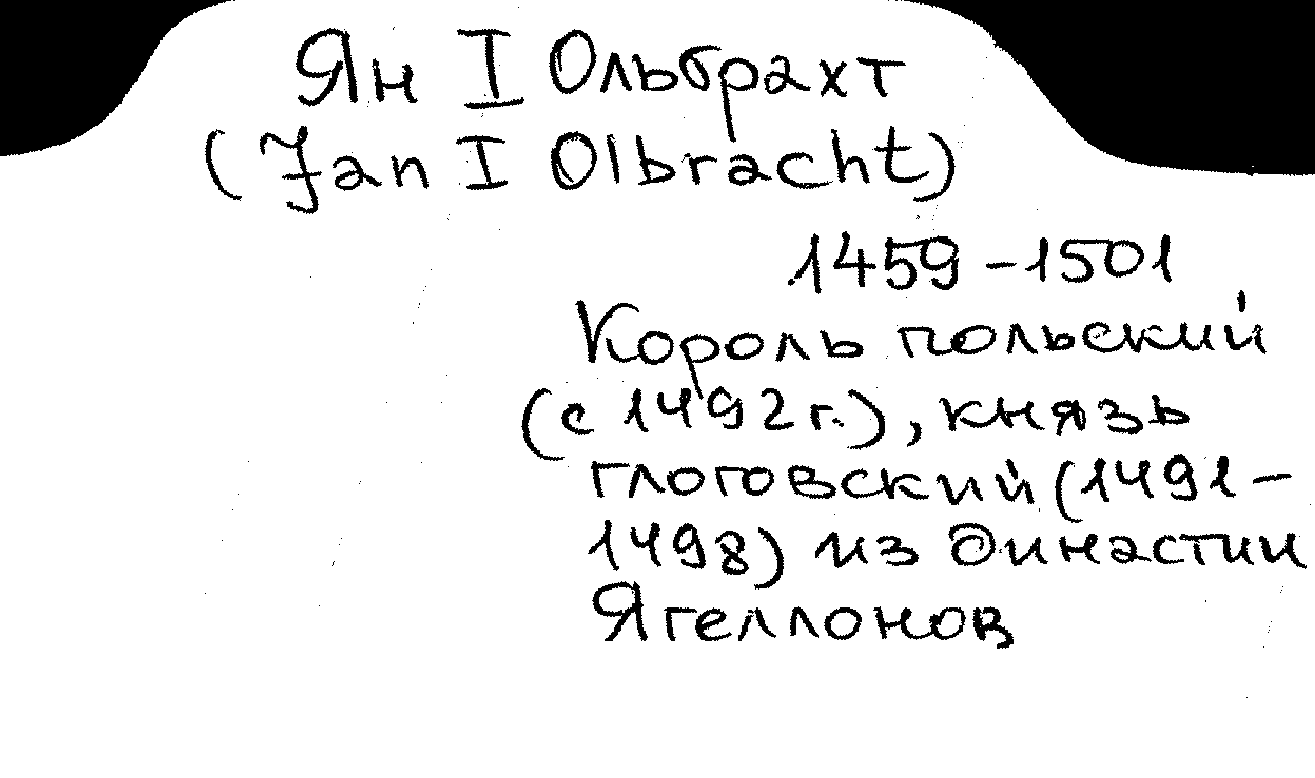 Ян I Ольбрахт
(Jan I Olbracht)
1459-1501
Король польский
(с 1492 г.), князь
глоговский (1491-
1498) из династии
Ягеллонов